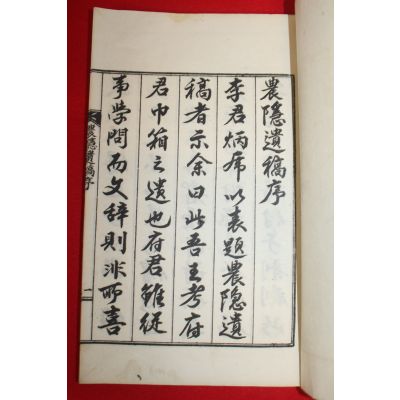 農隱遺稿序
李君炳席以袁題農隱遺
稿者示余曰此吾王考府
君巾箱之遺也府君雖從
事學問而文辭則非所喜
農隱遺稿序
一